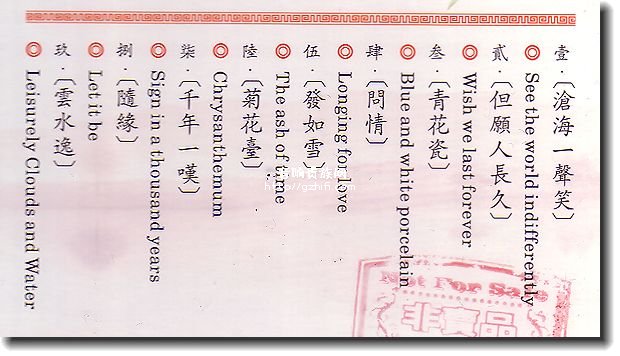 壹．〔滄海一聲笑〕
See the world indifferently
貳．〔但願人長久〕
Wish we last forever
叁．〔青花瓷〕
Blue and white porcelain
肆．〔問情〕
Longing for love
伍．〔發如雪〕
The ash of time
陸．〔菊花臺〕
Chrysanthemum
柒．〔千年一嘆〕
Sign in a thousand years
捌．〔隨緣〕
Let it be
玖．〔雲水逸〕
Leisurely Clouds and Water
Not For Sale
非賣品